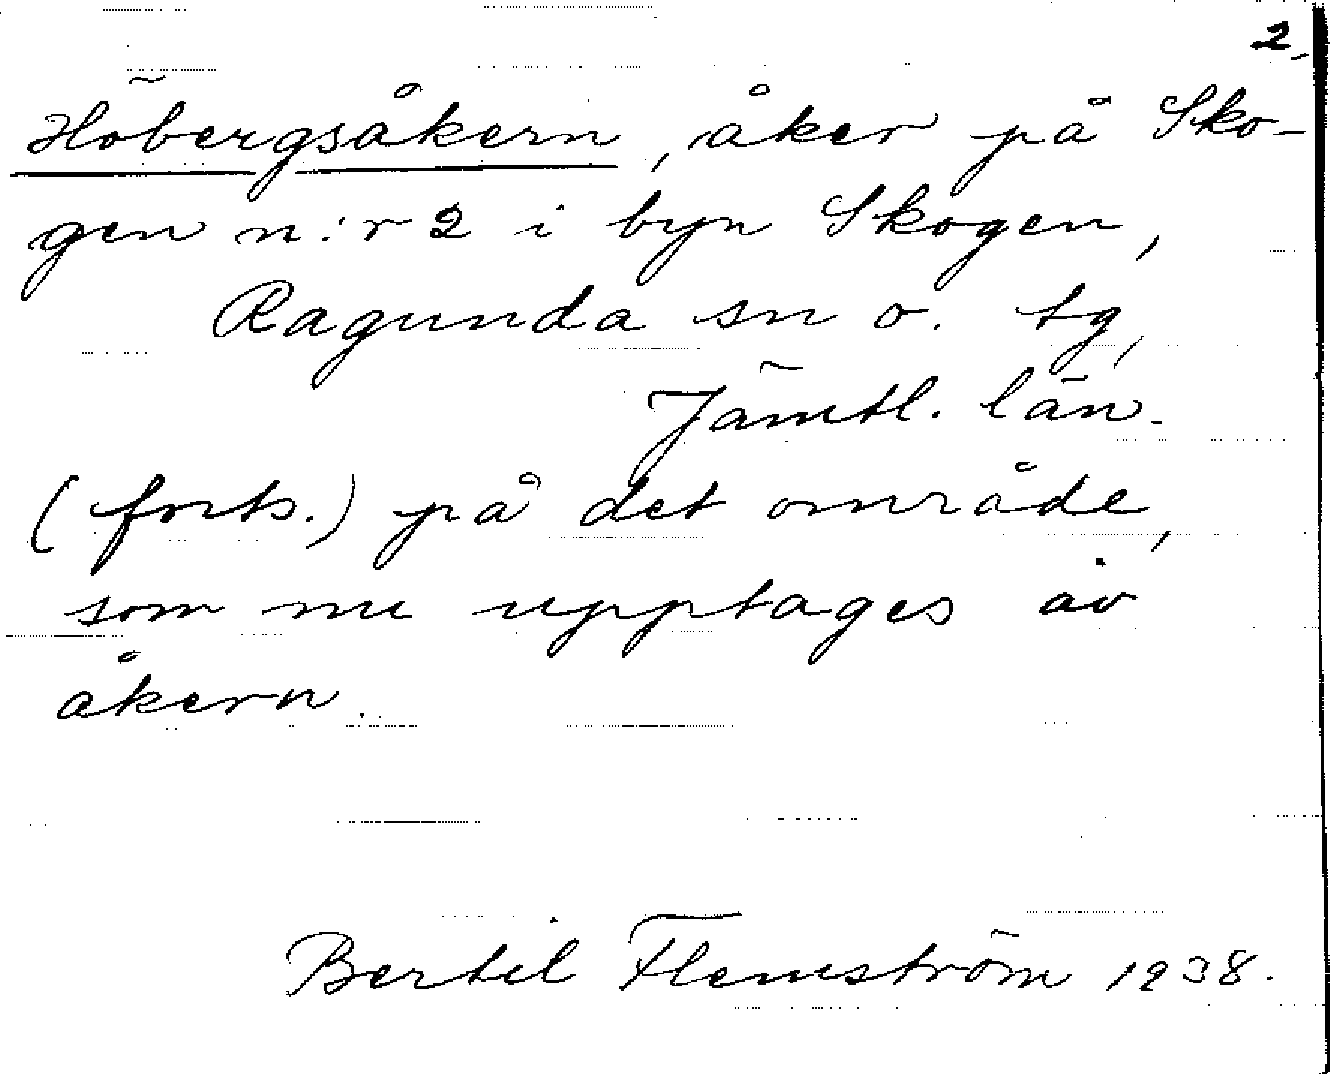 2.
Höbergsåkern, åker på Sko-
gen n:r 2 i byn Skogen,
Ragunda sn o. tg,
Jämtl. län.
(forts.) på det område,
som nu upptages av
åkern.
Bertil Flemström 1938.